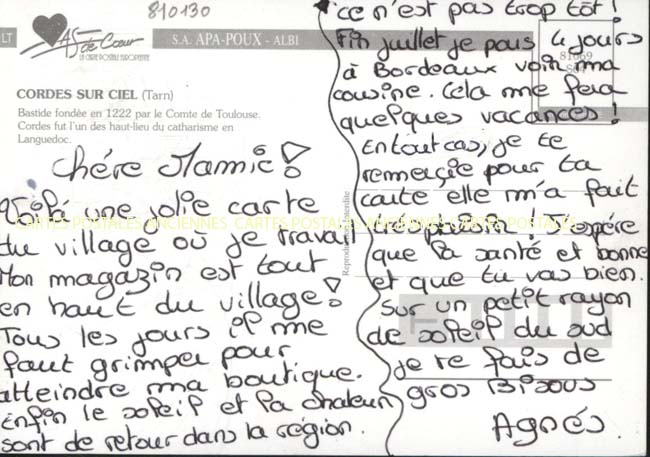 810130
LT
AS de Cœur
LA CARTE POSTALE EUROPEENNE
S.A. APA-POUX - ALBI
CORDES SUR CIEL (Tarn)
Bastide fondée en 1222 par le Comte de Toulouse.
Cordes fut l'un des haut-lieu du catharisme en
Languedoc.
chére Mamie !
Voilà une jolie carte
du village où je travail
Mon magazin est tout
en haut du village !
Tous les jours il me
faut grimper pour
atteindre ma boutique.
Enfin le soleil et la chaleur
sont de retour dans la région.
Reproduction Interdite
81069
ce n'est pas trop tôt !
Fin juillet je pars 4 jours
à Bordeaux voir ma
cousine. Cela me fera
quelques vacances !
En tout cas, je te
remerçie pour ta
carte elle m'a fait
très plaisir ! J'espére
que la santé et bonne
et que tu vas bien.
Sur un petit rayon
de soleil du sud
je te fais de
gros Bisous
Agnés.
CARTES POSTALES ANCIENNES CARTES POSTALES ANCIENNES CARTES POSTALES